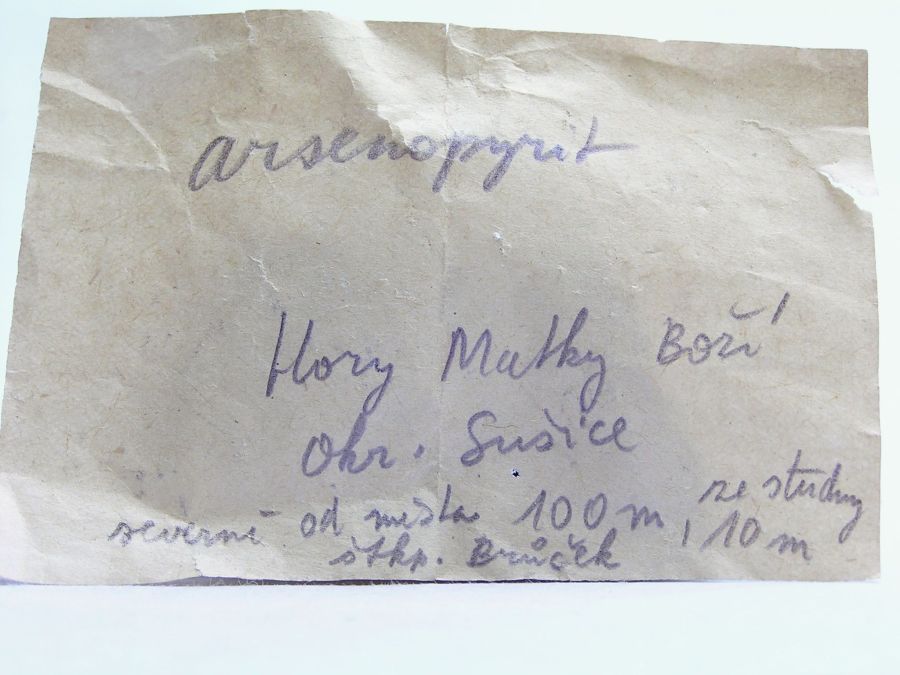 arsenopyrit
Hory Matky Boží
Okr. Sušice
severně od města 100 m, ze studny
štkp. Brůček 10 m